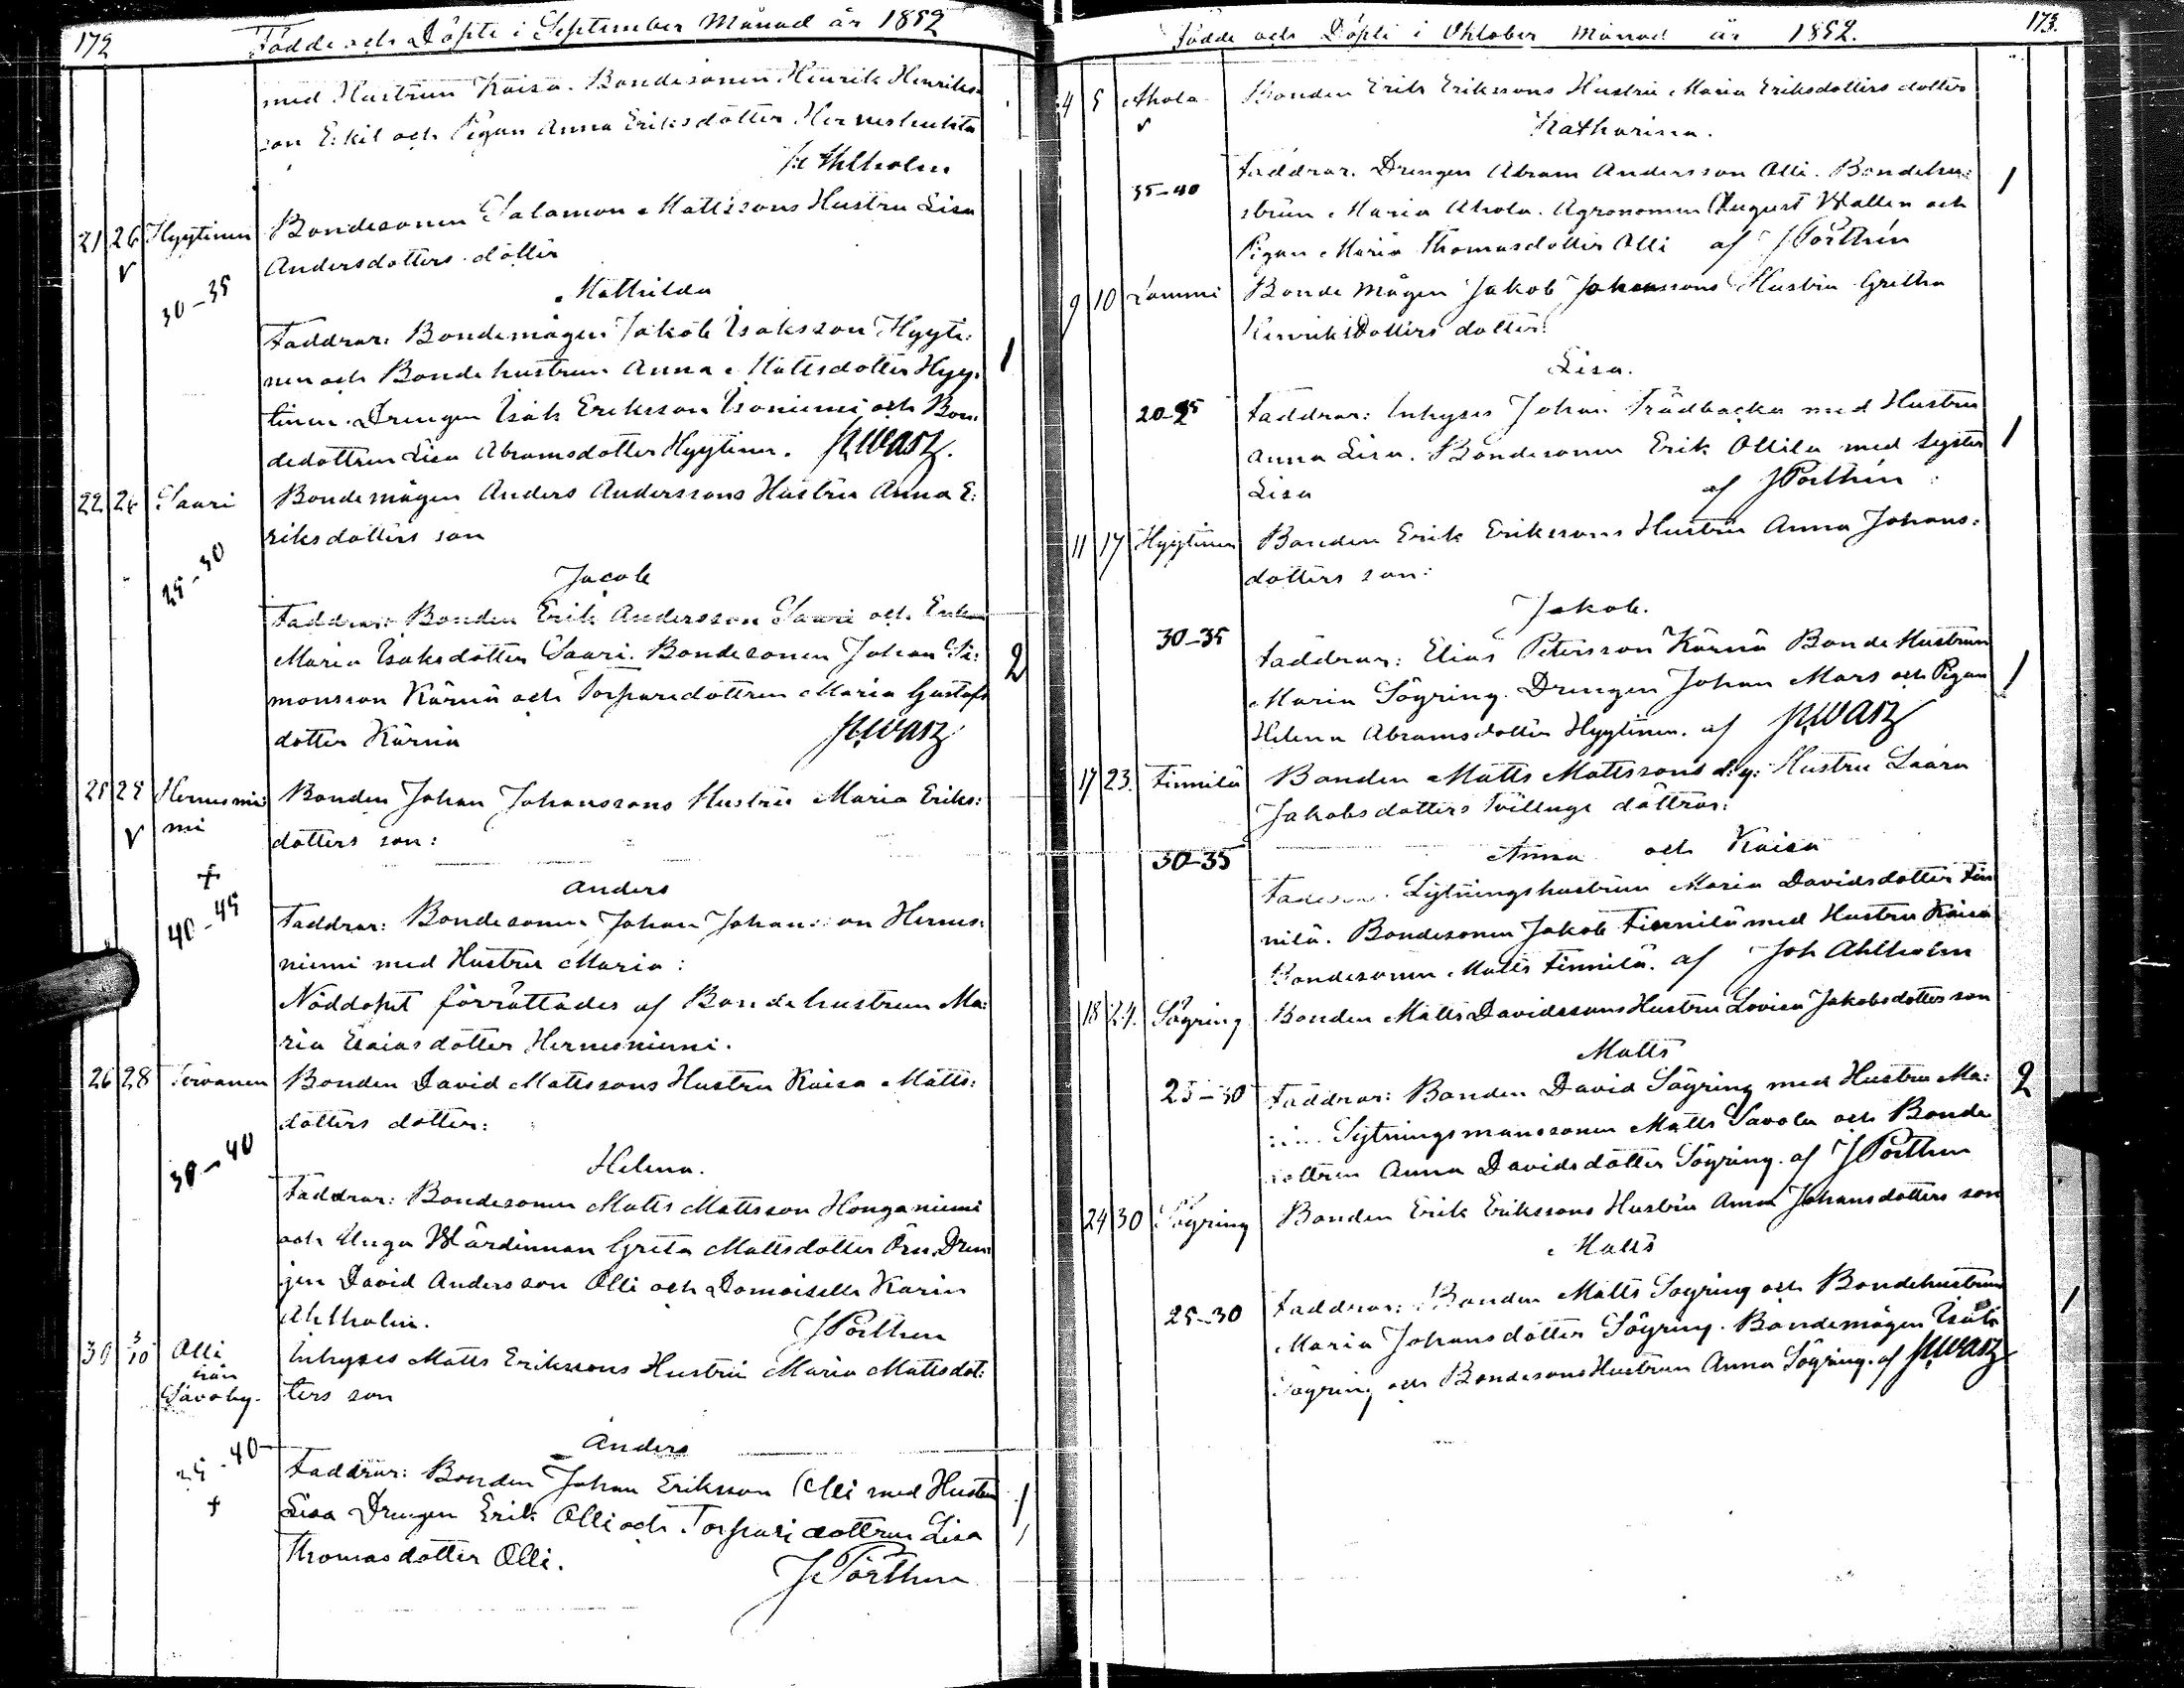 172
Födde och Döpte i September Månad år 1852
med Hustrun Kaisa. Bondesonen Henrik Henriks-
son Eskil och Pigan Anna Eriksdotter Herneshuhta
Ahlholm
21 26 Hyytinen Bondesonen Salomon Mattssons Hustru Lisa
Andersdotters dotter
30-35
Mathilda
Faddrar: Bondemågen Jakob Isaksson Hyyti-
nen och Bondehustrun Anna Mattsdotter Hyy- 1
tinen. Drengen Isak Eriksson Isoniemi och Bon-
dedottren Lisa Abramsdotter Hyytinen. Schwartz.
22 26 Saari Bondemågen Anders Anderssons Hustru Anna E:
riksdotters son
25-30
Jacob
Faddrar: Bonden Erik Andersson Saari och Enkan
Maria Isaksdotter Saari. Bondesonen Johan Si: 2
monsson Kärnä och Torparedottren Maria Gustafs
dotter Kärnä Schwartz
25 28 Hernesnie
mi
Bonden Johan Johanssons Hustru Maria Eriks:
dotters son:
+
40-45
Anders
Faddrar: Bondesonen Johan Johansson Hernes:
niemi med Hustru Maria:
Nöddopet förrättades af Bondehustrun Ma:
ria Esaiasdotter Hernesniemi.
26 28 Tervanen Bonden David Mattssons Hustru Kaisa Matts:
dotters dotter:
30-40
Helena.
Faddrar: Bondesonen Matts Mattsson Honganiemi
och Unga Wärdinnan Greta Mattsdotter Örn. Dren
gen David Andersson Olli och Demoiselle Karin
Ahlholm. J Pörthen
30 3/10 Olli
från
Savoby.
Inhyses Matts Erikssons Hustru Maria Mattsdot:
ters son
35-40
+
Anders
Faddrar: Bonden Johan Eriksson Olli med Hustru
Lisa Drengen Erik Olli och Torparedottren Lisa 1
Thomasdotter Olli.
J Pörthen
173.
Födde och Döpte i Oktober Månad år 1852.
4 5 Ahola Bonden Erik Erikssons Hustru Maria Eriksdotters dotter
Katharina.
35-40
Faddrar. Drengen Abram Andersson Olli. Bondehu: 1
strun Maria Ahola. Agronomen August Wallen och
Pigan Maria Thomasdotter Olli af J Pörthén
9 10 Lammi Bonde mågen Jakob Johanssons Hustru Gretha
Henriksdotters dotter:
Lisa.
20-25
Faddrar: Inhyses Johan Trädbacka med Hustru
Anna Lisa. Bondesonen Erik Ollila med syster 1
Lisa af J Pörthén
11 17 Hyytinen Bonden Erik Erikssons Hustru Anna Johans:
dotters son:
Jakob.
30-35
Faddrar: Elias Petersson Kärnä Bonde Hustrun
Maria Sögring. Drengen Johan Mars och Pigan 1
Helena Abramsdotter Hyytinen. af Schwartz
17 23. Finnilä Bonden Matts Mattssons d:y: Hustru Laara
Jakobsdotters Tvillinge döttrar:
Anna och Kaisa
30-35
Faddrar. Sytningshustrun Maria Davidsdotter Fin
nilä. Bondesonen Jakob Finnilä med Hustru Kaisa
Bondesonen Matts Finnilä. af Joh Ahlholm
18 24. Sögring Bonden Matts Davidssons Hustru Lovisa Jakobsdotters son
Matts
25-30
Faddrar: Bonden David Sögring med Hustru Ma: 2
Sytningsmanssonen Matts Savola och Bonde
dottren Anna Davidsdotter Sögring. af J Pörthen
24 30 Sögring Bonden Erik Erikssons Hustru Anna Johansdotters son
Matts
25-30
Faddrar: Bonden Matts Sögring och Bondehustrun
Maria Johansdotter Sögring. Bondemågen Isak 1
Sögring och BondesonsHustrun Anna Sögring. af Schwartz